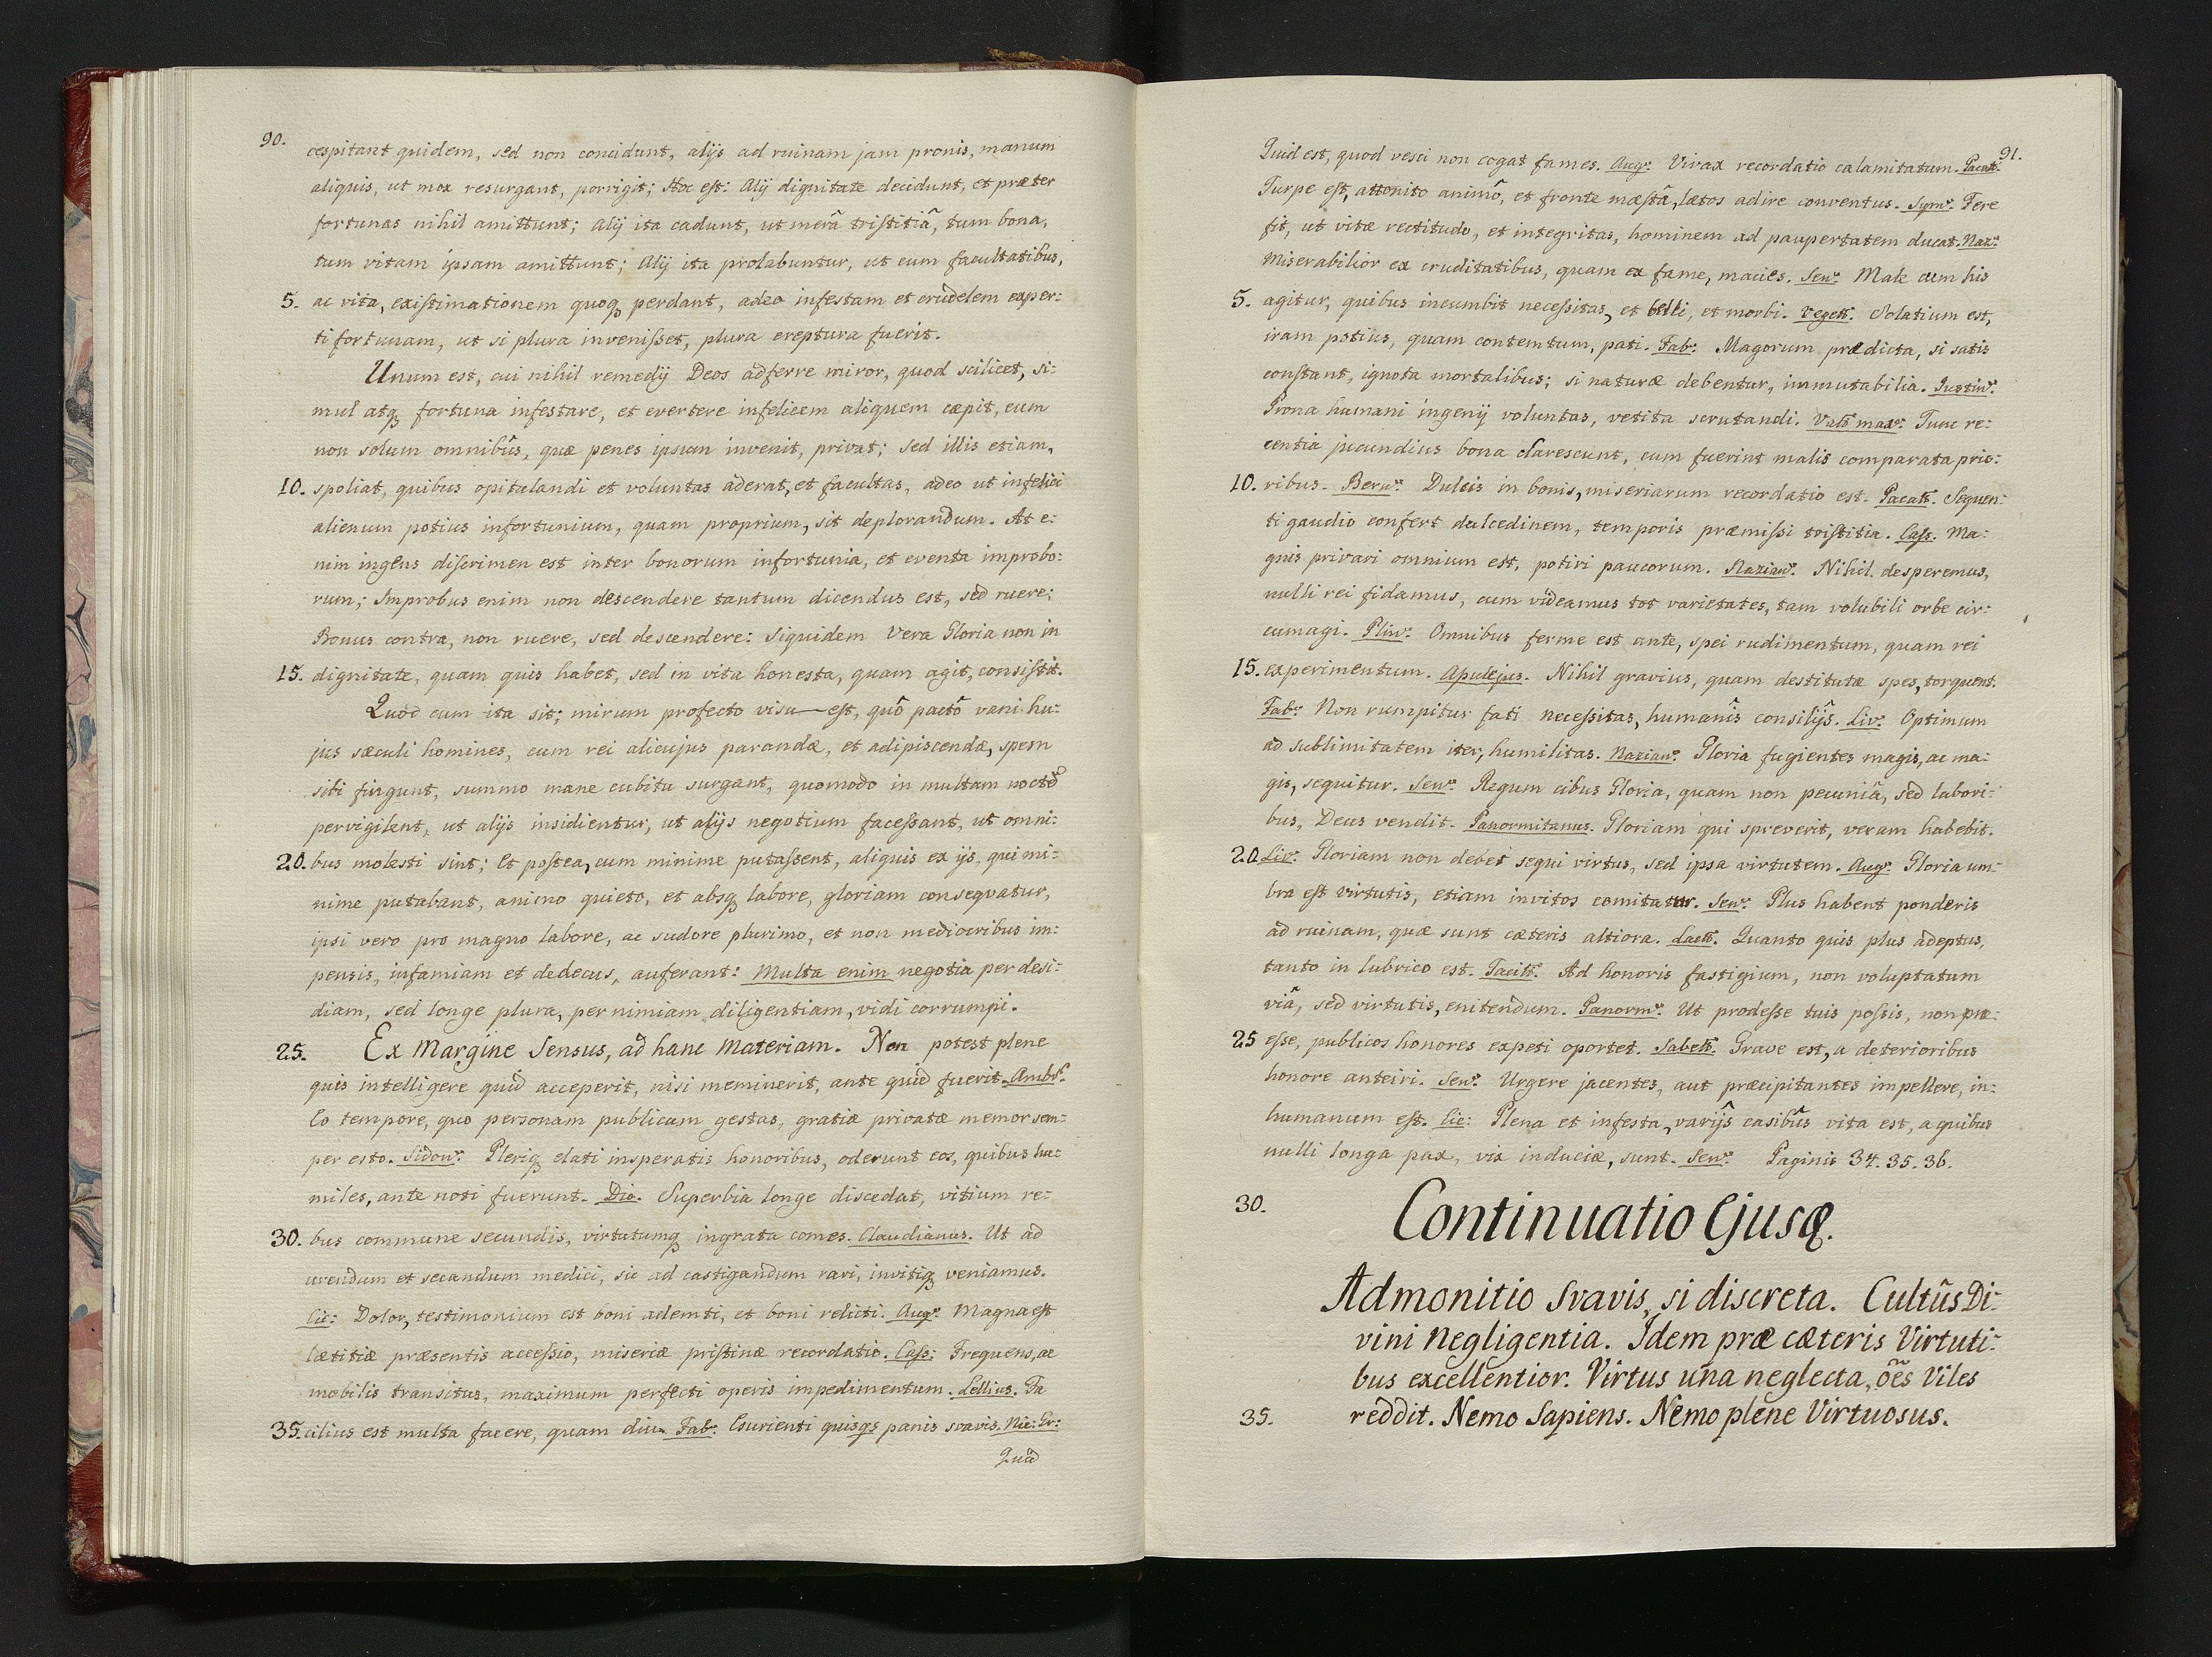 90.
cespitant quidem, sed non concidunt, alijs ad ruinam jam pronis, manum
aliquis, ut mox resurgant, porrigit; Hoc est: Alij dignitate decidunt, et præter
fortunas nihil amittunt; Alij ita cadunt, ut merâ tristitiâ, tum bona,
tum vitam ipsam amittunt; Alij ita prolabuntur, ut cum facultatibus,
5. ac vita, existimationem quoqꝫ perdant, adeo infestam et crudelem exper:
ti fortunam, ut si plura invenisset, plura ereptura fuerit.
Unum est, cui nihil remedij Deos adferre miror, quod scilicet, si:
mul atqꝫ fortuna infestare, et evertere infelicem aliquem cæpit, eum
non solum omnibûs, quæ penes ipsum invenit, privat; sed illis etiam,
10. spoliat, quibus opitulandi et voluntas aderat, et facultas, adeo ut infelici
alienum potius infortunium, quam proprium, sit deplorandum. At e:
nim ingens discrimen est inter bonorum infortunia, et eventa improbo:
rum; Improbus enim non descendere tantum dicendus est, sed ruere;
Bonus contra, non ruere, sed descendere: Siquidem Vera Gloria non in
15. dignitate, quam quis habet, sed in vita honesta, quam agit, consistit.
Quod cum ita sit; mirum profecto visu est, quô pactô vani hu:
jus sæculi homines, cum rei alicujus parandæ, et adipiscendæ, spem
sibi fingunt, summo mane cubitu surgant, quomodo in multam nocte
pervigilent, ut alijs insidientur, ut alijs negotium facessant, ut omni:
20. bus molesti sint; Et postea, cum minime putassent, aliquis ex ijs, qui mi:
nime putabant, animo quieto, et absqꝫ labore, gloriam consequatur,
ipsi vero pro magno labore, ac sudore plurimo, et non mediocribus im:
pensis, infamiam et dedecus, auferant: Multa enim negotia per desi:
diam, sed longe plura, per nimiam diligentiam, vidi corrumpi.
25. Ex Margine Sensus, ad hanc Materiam. Non potest plene
quis intelligere quid acceperit, nisi meminerit, ante quid fuerit. Ambr.
Eo tempore, quo personam publicam gestas, gratiæ privatæ memor sem:
per esto. Sidon. Pleriqꝫ elati insperatis honoribus, oderunt eos, quibus hu:
miles, ante noti fuerunt. Dio. Superbia longe discedat, vitium re:
30. bus commune secundis, virtutumqꝫ ingrata comes. Claudianus. Ut ad
urendum et secandum medici, sic ad castigandum rari, invitiqꝫ veniamus.
Cic: Dolor, testimonium est boni ademti, et boni relicti. Aug. Magna est
lætitiæ præsentis accessio, miseriæ pristinæ recordatio. Cass: Frequens, ac
mobilis transitus, maximum perfecti operis impedimentum. Lellius. Fa
35. cilius est multa facere, quam diu. Fab. Esurienti quisqs panis svavis. Nic: Er:
Quid
91.
Quid est, quod vesci non cogat fames. Aug. Vivax recordatio calamitatum. Pacat.
Turpe est, attonito animô, et fronte mæstâ, lætos adire conventus. Sym. Fere
fit, ut vitæ rectitudo, et integritas, hominem ad paupertatem ducat. Naz.
Miserabilior ex cruditatibus, quam ex fame, macies. Sen. Male cum his
5. agitur, quibus incumbit necessitas, et belli, et morbi. Veget. Solatium est,
iram potius, quam contemtum, pati. Fab. Magorum prædicta, si satis
constant, ignota mortalibus; si naturæ debentur, immutabilia. Justin.
Prona humani ingenij voluntas, vetita scrutandi. Val. max. Tunc re:
centia jucundius bona clarescunt, cum fuerint malis comparata prio:
10. ribus. Bern. Dulcis in bonis, miseriarum recordatio est. Pacat. Sequen:
ti gaudio confert dulcedinem, temporis præmissi tristitia. Cass. Ma:
gnis privari omnium est, potiri paucorum. Nazian. Nihil desperemus,
nulli rei fidamus, cum videamus tot varietates, tam volubili orbe cir:
cumagi. Plin. Omnibus ferme est ante, spei rudimentum, quam rei
15. experimentum. Apulejus. Nihil gravius, quam destitutæ spes, torquent.
Fab. Non rumpitur fati necessitas, humanîs consilijs. Liv. Optimum
ad sublimitatem iter, humilitas. Nazian. Gloria fugientes magis, ac ma:
gis, sequitur. Sen. Regum cibus Gloria, quam non pecuniâ, sed labori:
bus, Deus vendit. Panormitanus. Gloriam qui spreverit, veram habebit.
20. Liv. Gloriam non debet sequi virtus, sed ipsa virtutem. Aug. Gloria um:
bra est virtutis, etiam invitos comitatur. Sen. Plus habent ponderis
ad ruinam, quæ sunt cæteris altiora. Lact. Quanto quis plus adeptus,
tanto in lubrico est. Tacit. Ad honoris fastigium, non voluptatum
viâ, sed virtutis, enitendum. Panorm. Ut prodesse tuis possis, non præ:
25 esse, publicos honores expeti oportet. Sabell. Grave est, a deterioribus
honore anteiri. Sen. Urgere jacentes, aut præcipitantes impellere, in:
humanum est. Cic: Plena et infesta, varijs casibûs vita est, a quibus
nulli longa pax, vix induciæ, sunt. Sen. Paginis 34. 35. 36.
30. Continuatio Ejusꝗ.
Admonitio Svavis, si discreta. Cultûs Di:
vini Negligentia. Idem præ cæteris Virtuti:
bus excellentior. Virtus una neglecta, oẽs Viles
35. reddit. Nemo Sapiens. Nemo plene Virtuosus.